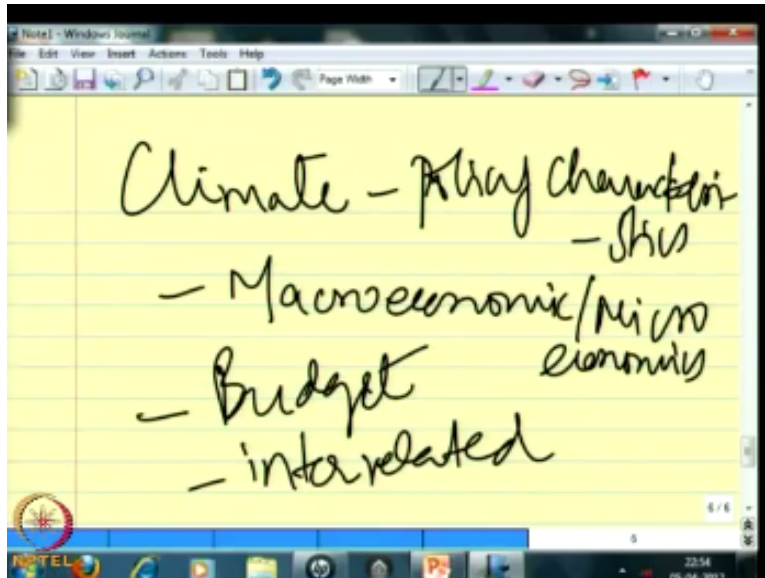 Note1 - Windows Journal
File Edit View Insert Actions Tools Help
Page Width
Climate - policy characteri
- stics
- Macroeconomic/Micro
economics
- Budget
- interrelated
6 / 6
6
NPTEL
22:54
05-04-2012